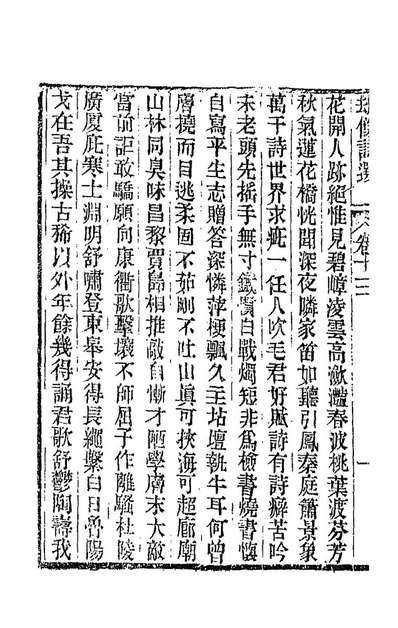 詩選 卷十二 一
花開人跡絕惟見碧嶂淩雲高瀲灩春波桃葉渡芬芳
秋氣蓮花橋恍聞深夜隣家笛如聽引鳳秦庭蕭景象
萬千詩世界求疵一任人吹毛君好賦詩有詩癖苦吟
未老頭先搔手無寸鐵賈白戰燭短非爲檢書燒書懷
自寫平生志贈答深憐萍梗飄久主坫壇執牛耳何曾
膚撓而目逃柔固不茹剛不吐山眞可挾海可超廊廟
山林同臭味昌黎賈島相推敲自慚才陋學膚末大敵
當前詎敢驕願向康衢歌擊壤不師屈子作離騷杜陵
廣厦庇寒士淵明舒嘯登東皋安得長繩繫白日魯陽
戈在吾其操古稀以外年餘幾得誦君歌舒鬱陶壽我